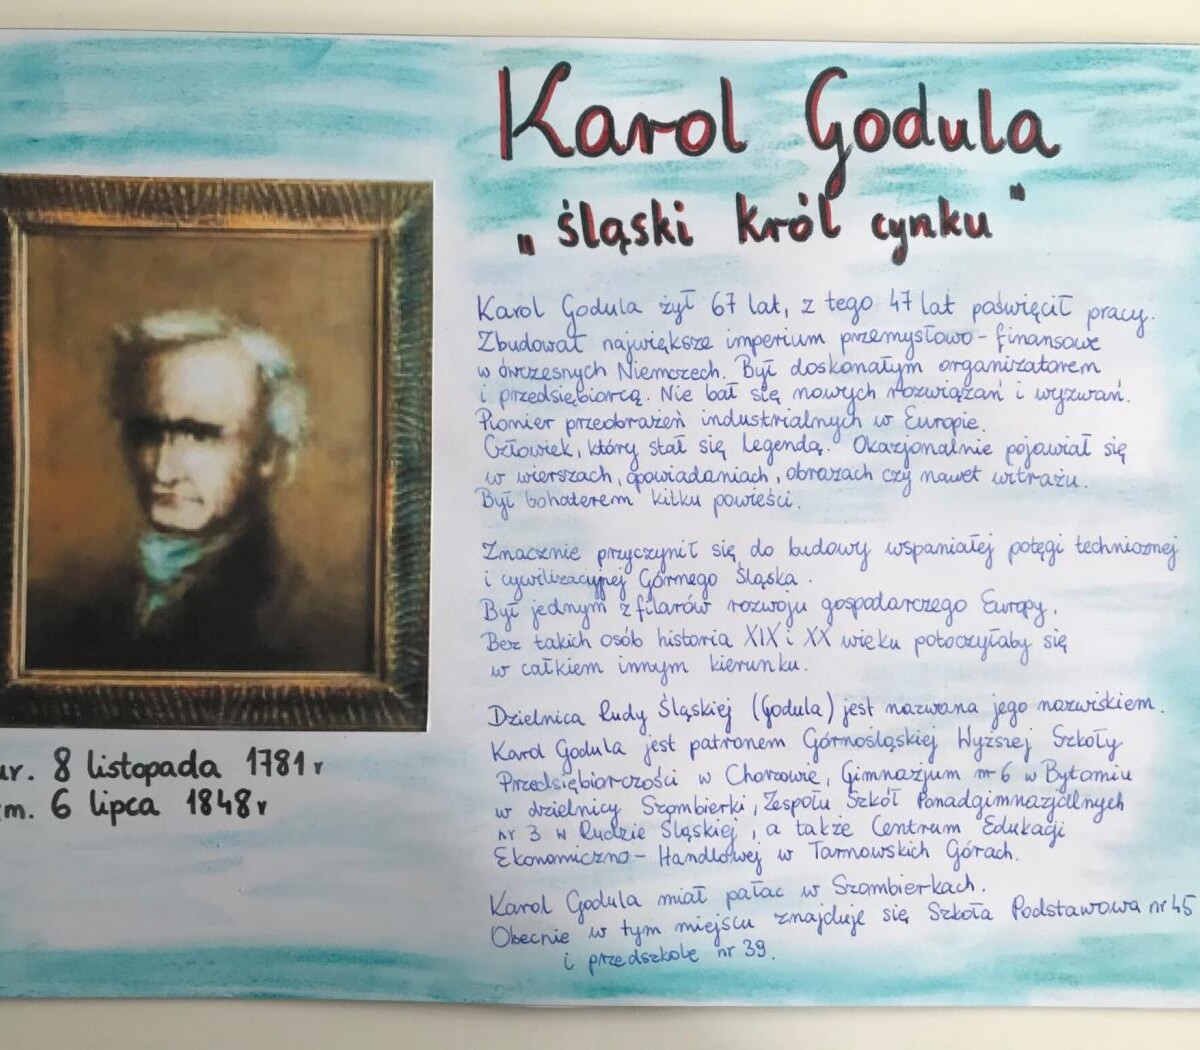 Karol Godula
„śląski król cynku"
Karol Godula żył 67 lat, z tego 47 lat poświęcił pracy.
Zbudował największe imperium przemysłowo-finansowe
w ówczesnych Niemczech. Był doskonałym organizatorem
i przedsiębiorcą. Nie bał się nowych rozwiązań i wyzwań.
Pionier przeobrażeń industrialnych w Europie.
Człowiek, który stał się legendą. Okazjonalnie pojawiał się
w wierszach, opowiadaniach, obrazach czy nawet witrażu.
Był bohaterem kilku powieści.
Znacznie przyczynił się do budowy wspaniałej potęgi technicznej
i cywilizacyjnej Górnego Śląska.
Był jednym z filarów rozwoju gospodarczego Europy.
Bez takich osób historia XIX i XX wieku potoczyłaby się
w całkiem innym kierunku.
Dzielnica Rudy Śląskiej (Godula) jest nazwana jego nazwiskiem.
Karol Godula jest patronem Górnośląskiej Wyższej Szkoły
Przedsiębiorczości w Chorzowie, Gimnazjum nr 6 w Bytomiu
w dzielnicy Szombierki, Zespołu Szkół Ponadgimnazjalnych
nr 3 w Rudzie Śląskiej, a także Centrum Edukacji
Ekonomiczno-Handlowej w Tarnowskich Górach.
Karol Godula miał pałac w Szombierkach.
Obecnie w tym miejscu znajduje się Szkoła Podstawowa nr 45
i przedszkole nr 39.
ur. 8 listopada 1781 r
zm. 6 lipca 1848 r